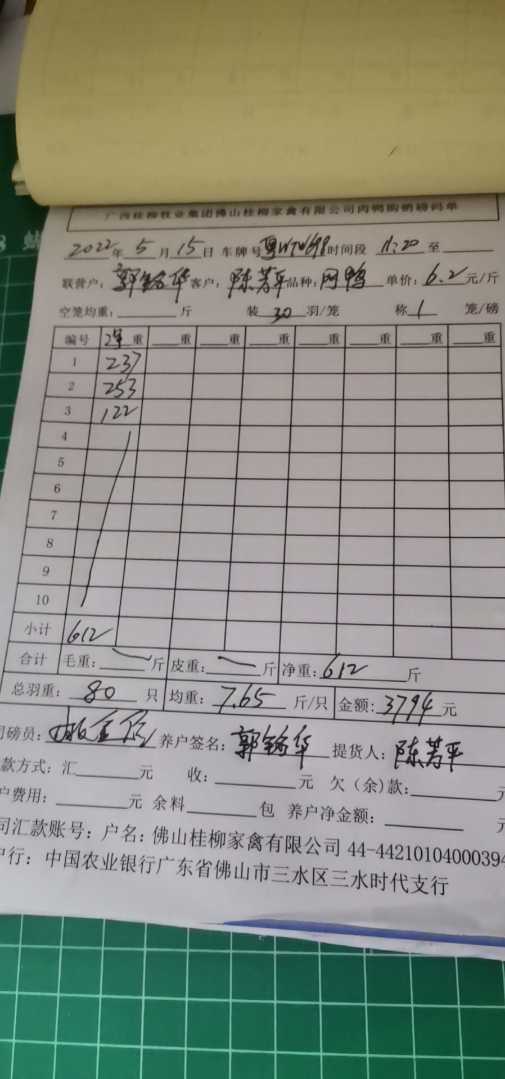 广西桂柳牧业集团佛山桂柳家禽有限公司肉鸭购销磅码单
2022年 5 月 15 日 车牌号 时间段 11:20 至
联营户: 郭铭华 客户: 陈芳平 品种: 网鸭 单价: 6.2 元/斤
空笼均重: 斤 装 30 羽/笼 称 1 笼/磅
编号 净重 重 重 重 重 重 重 重
1 237
2 253
3 122
4
5
6
7
8
9
10
小计 612
合计 毛重: 斤 皮重: 斤 净重: 612 斤
总羽重: 80 只 均重: 7.65 斤/只 金额: 3794 元
司磅员: 养户签名: 郭铭华 提货人: 陈芳平
款方式: 汇 元 收: 元 欠(余)款: 元
户费用: 元 余料 包 养户净金额: 元
司汇款账号: 户名: 佛山桂柳家禽有限公司 44-44210104000394
户行: 中国农业银行广东省佛山市三水区三水时代支行